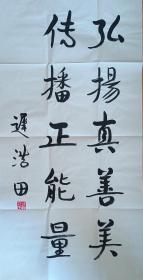 弘揚真善美
传播正能量
遲浩田